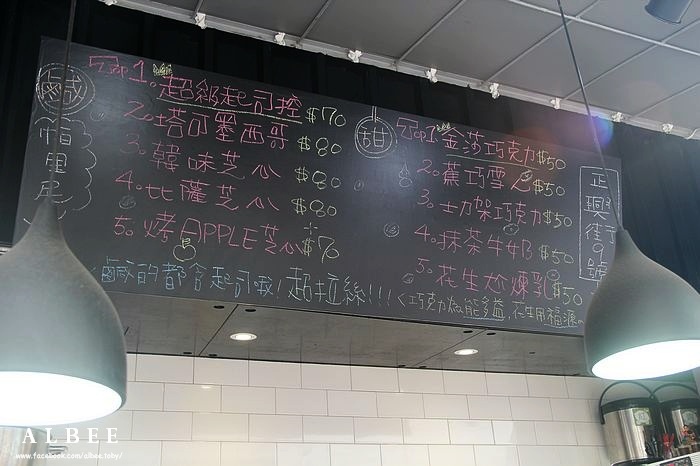 鹹
帕里尼
TOP 1. 超級起司控 $70
2. 塔可墨西哥 $80
3. 韓味芝心 $80
4. 比薩芝心 $80
5. 烤APPLE芝心 $70
鹹的都含起司哦! 超拉絲!!!
甜
TOP 1. 金莎巧克力 $50
2. 蕉巧雪 $50
3. 士力架巧克力 $50
4. 抹茶牛奶 $50
5. 花生尬煉乳 $50
<巧克力為能多益, 花生用福源
正興街9號
ALBEE
www.facebook.com/albee.toby/